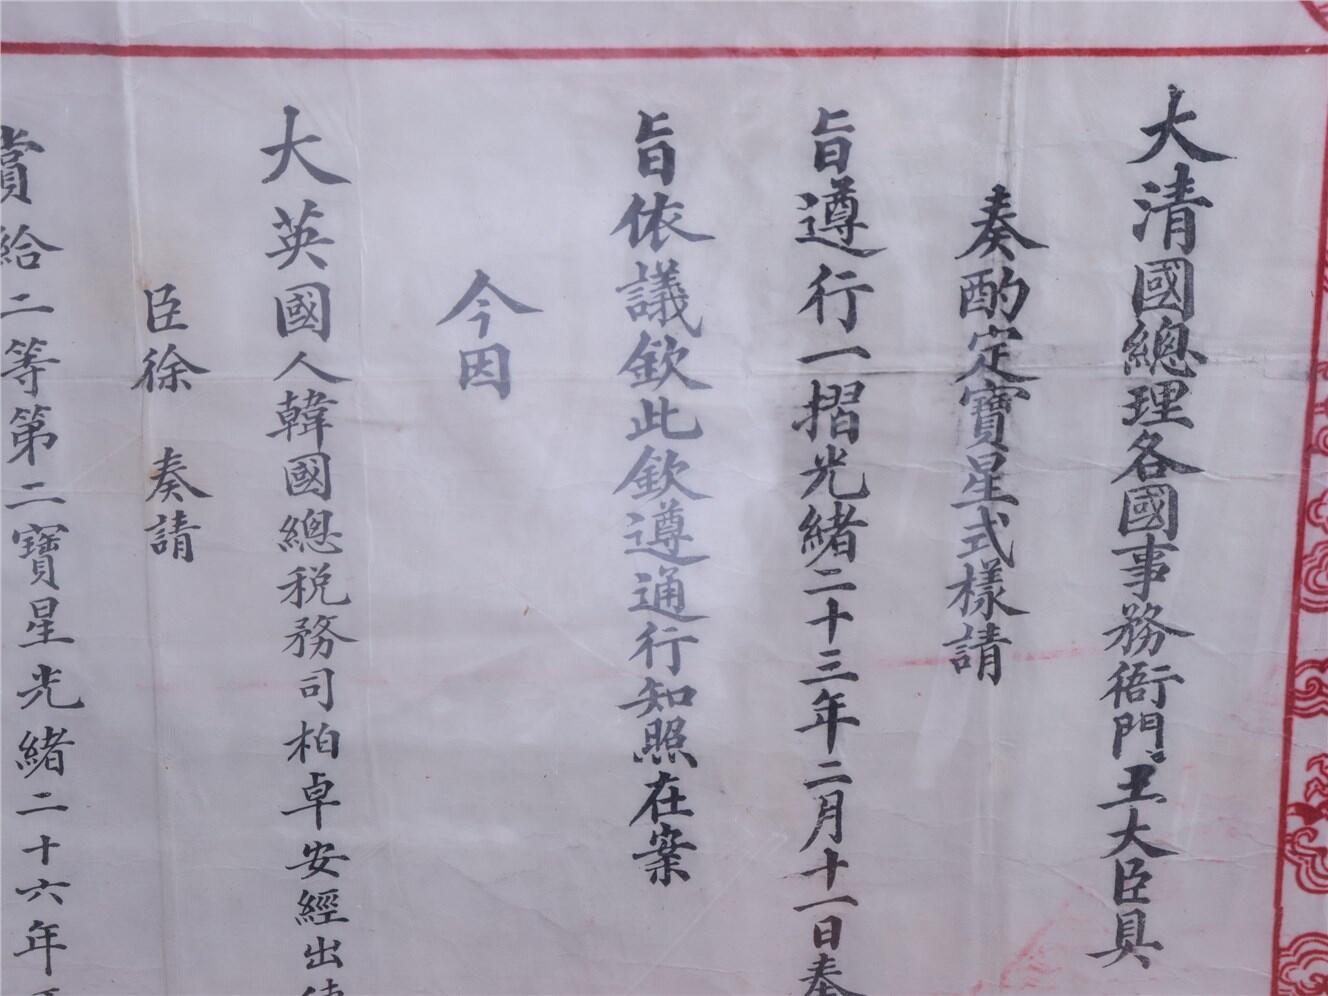 大清國總理各國事務衙門王大臣具
奏酌定寶星式樣請
旨遵行一摺光緒二十三年二月十一日奉
旨依議欽此欽遵通行知照在案
今因
大英國人韓國總税務司柏卓安經出使
臣徐 奏請
賞給二等第二寶星光緒二十六年